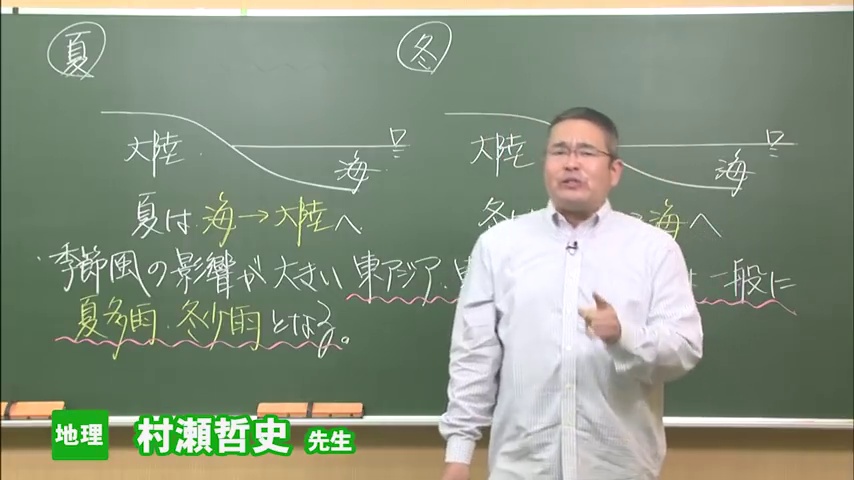 夏
冬
大陸
海
大陸
海
夏は海→大陸へ
冬は 海へ
・季節風の影響が大きい東アジア・ は一般に
夏多雨・冬少雨となる。
地理 村瀬哲史 先生